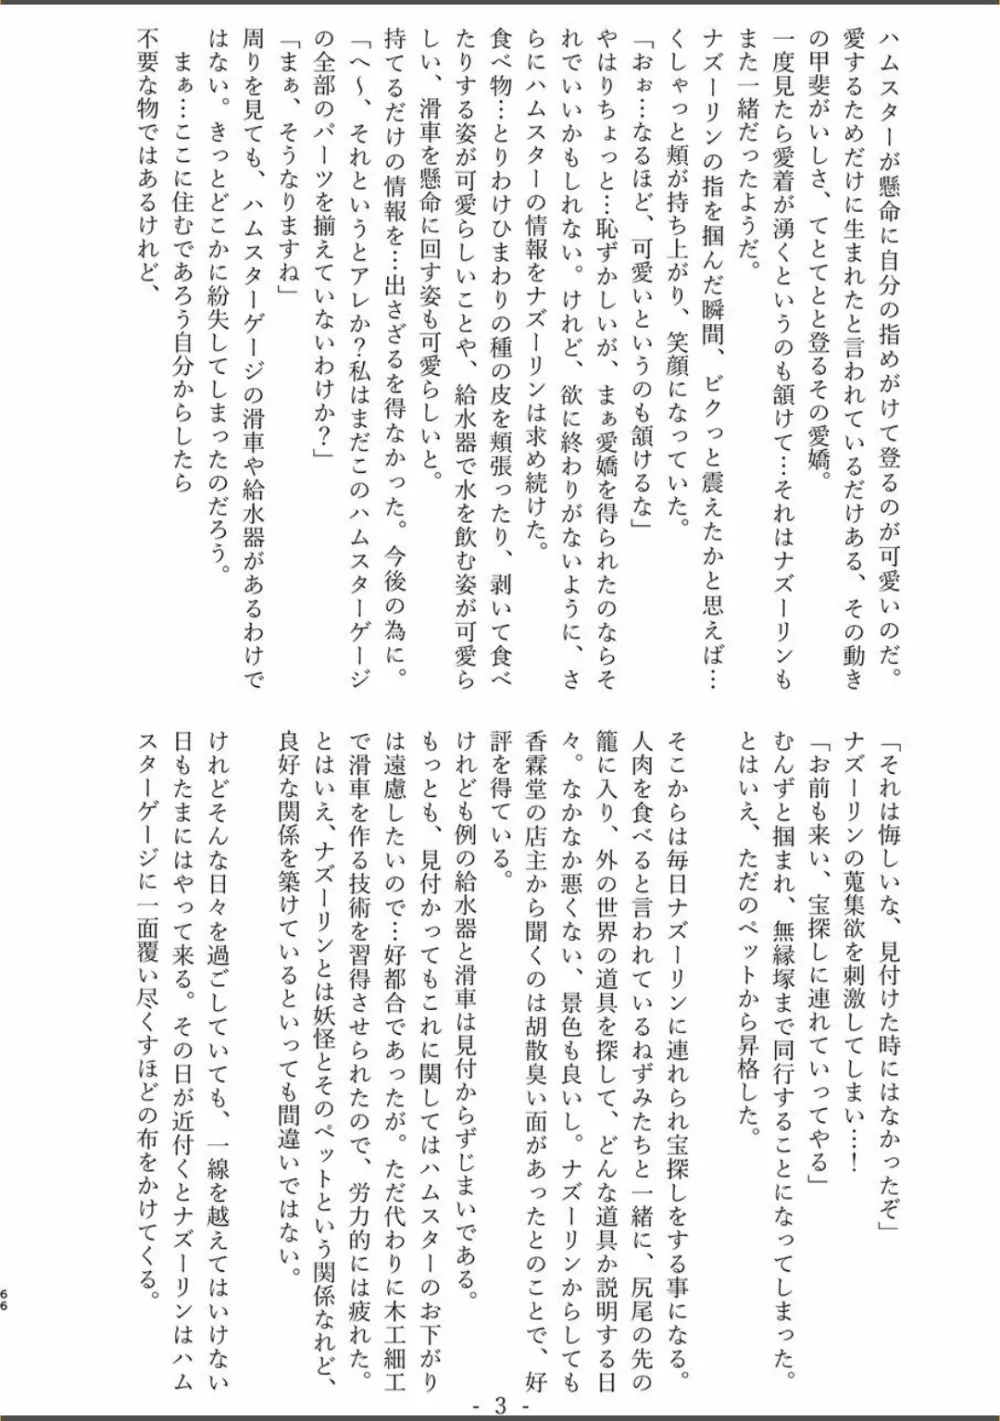 ハムスターが懸命に自分の指めがけて登るのが可愛いのだ。
愛するためだけに生まれたと言われているだけある、その動き
の甲斐がいしさ、てとてとと登るその愛嬌。
一度見たら愛着が湧くというのも頷けて…それはナズーリンも
また一緒だったようだ。
ナズーリンの指を掴んだ瞬間、ビクっと震えたかと思えば…
くしゃっと頬が持ち上がり、笑顔になっていた。
「おぉ…なるほど、可愛いというのも頷けるな」
やはりちょっと…恥ずかしいが、まぁ愛嬌を得られたのならそ
れでいいかもしれない。けれど、欲に終わりがないように、さ
らにハムスターの情報をナズーリンは求め続けた。
食べ物…とりわけひまわりの種の皮を頬張ったり、剥いて食べ
たりする姿が可愛らしいことや、給水器で水を飲む姿が可愛ら
しい、滑車を懸命に回す姿も可愛らしいと。
持てるだけの情報を…出さざるを得なかった。今後の為に。
「へ～、それというとアレか？私はまだこのハムスターゲージ
の全部のパーツを揃えていないわけか？」
「まぁ、そうなりますね」
周りを見ても、ハムスターゲージの滑車や給水器があるわけで
はない。きっとどこかに紛失してしまったのだろう。
まぁ…ここに住むであろう自分からしたら
不要な物ではあるけれど、
「それは悔しいな、見付けた時にはなかったぞ」
ナズーリンの蒐集欲を刺激してしまい…！
「お前も来い、宝探しに連れていってやる」
むんずと掴まれ、無縁塚まで同行することになってしまった。
とはいえ、ただのペットから昇格した。
そこからは毎日ナズーリンに連れられ宝探しをする事になる。
人肉を食べると言われているねずみたちと一緒に、尻尾の先の
籠に入り、外の世界の道具を探して、どんな道具か説明する日
々。なかなか悪くない、景色も良いし。ナズーリンからしても
香霖堂の店主から聞くのは胡散臭い面があったとのことで、好
評を得ている。
けれども例の給水器と滑車は見付からずじまいである。
もっとも、見付かってもこれに関してはハムスターのお下がり
は遠慮したいので…好都合であったが。ただ代わりに木工細工
で滑車を作る技術を習得させられたので、労力的には疲れた。
とはいえ、ナズーリンとは妖怪とそのペットという関係なれど、
良好な関係を築けているといっても間違いではない。
けれどそんな日々を過ごしていても、一線を越えてはいけない
日もたまにはやって来る。その日が近付くとナズーリンはハム
スターゲージに一面覆い尽くすほどの布をかけてくる。
66
- 3 -